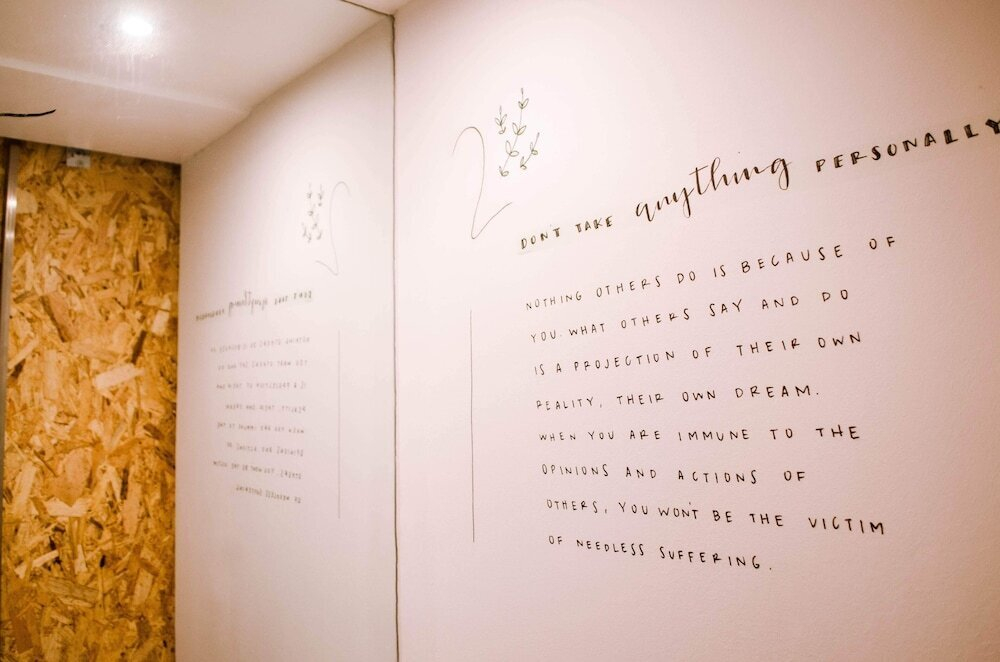 2
DON'T TAKE anything PERSONALLY
NOTHING OTHERS DO IS BECAUSE OF
YOU. WHAT OTHERS SAY AND DO
IS A PROJECTION OF THEIR OWN
REALITY, THEIR OWN DREAM.
WHEN YOU ARE IMMUNE TO THE
OPINIONS AND ACTIONS OF
OTHERS, YOU WON'T BE THE VICTIM
OF NEEDLESS SUFFERING.